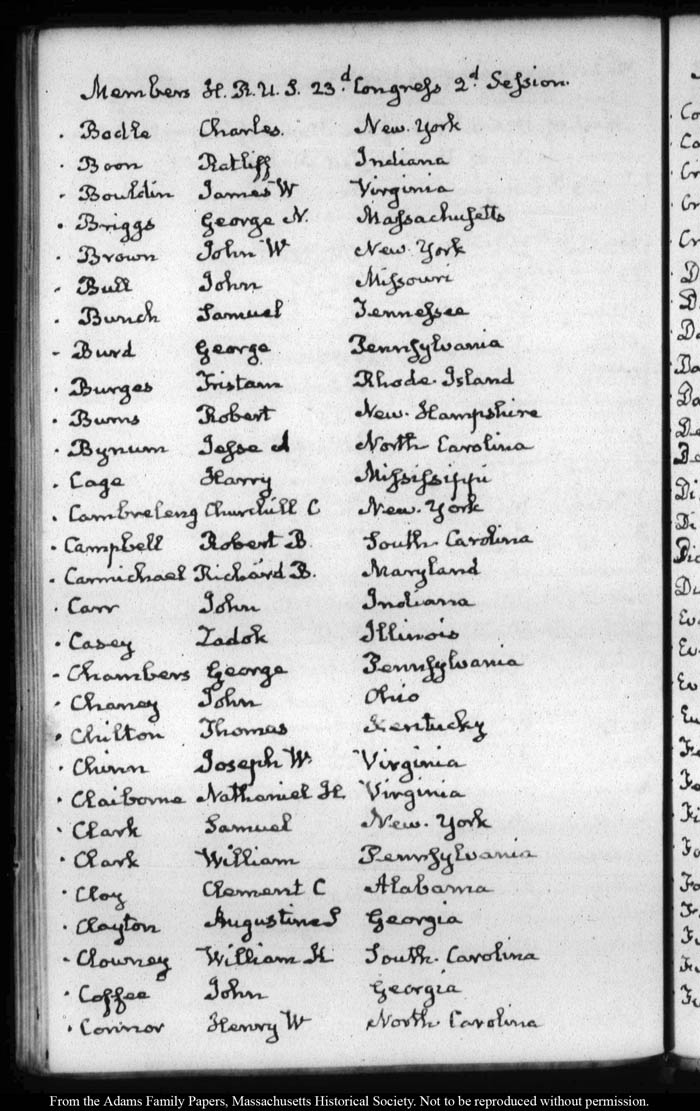 Members H. R. U. S. 23.d Congress 2.d Session.
Bodle Charles. New. York
Boon Ratliff Indiana
Bouldin James W Virginia
Briggs George N. Massachusetts
Brown John W New. York
Bull John Missouri
Bunch Samuel Tennessee
Burd George Pennsylvania
Burges Tristam Rhode. Island
Burns Robert New. Hampshire
Bynum Jesse A North Carolina
Cage Harry Mississippi
Cambreleng Churchill C New. York
Campbell Robert B. South. Carolina
Carmichael Richard B. Maryland
Carr John Indiana
Casey Zadok Illinois
Chambers George Pennsylvania
Chaney John Ohio
Chilton Thomas Kentucky
Chinn Joseph W. Virginia
Claiborne Nathaniel H. Virginia
Clark Samuel New. York
Clark William Pennsylvania
Clay Clement C Alabama
Clayton Augustine S Georgia
Clowney William K South. Carolina
Coffee John Georgia
Connor Henry W North Carolina
From the Adams Family Papers, Massachusetts Historical Society. Not to be reproduced without permission.